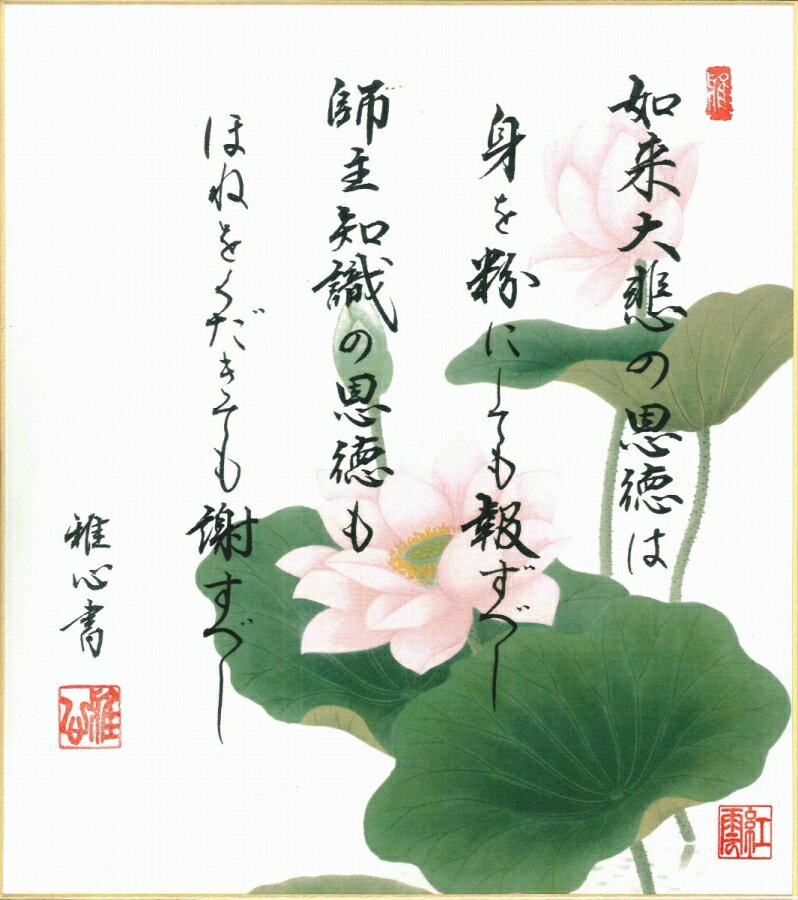 如来大悲の恩徳は
身を粉にしても報ずべし
師主知識の恩徳も
ほねをくだきても謝すべし
雅心書
雅
雅心
紅雲